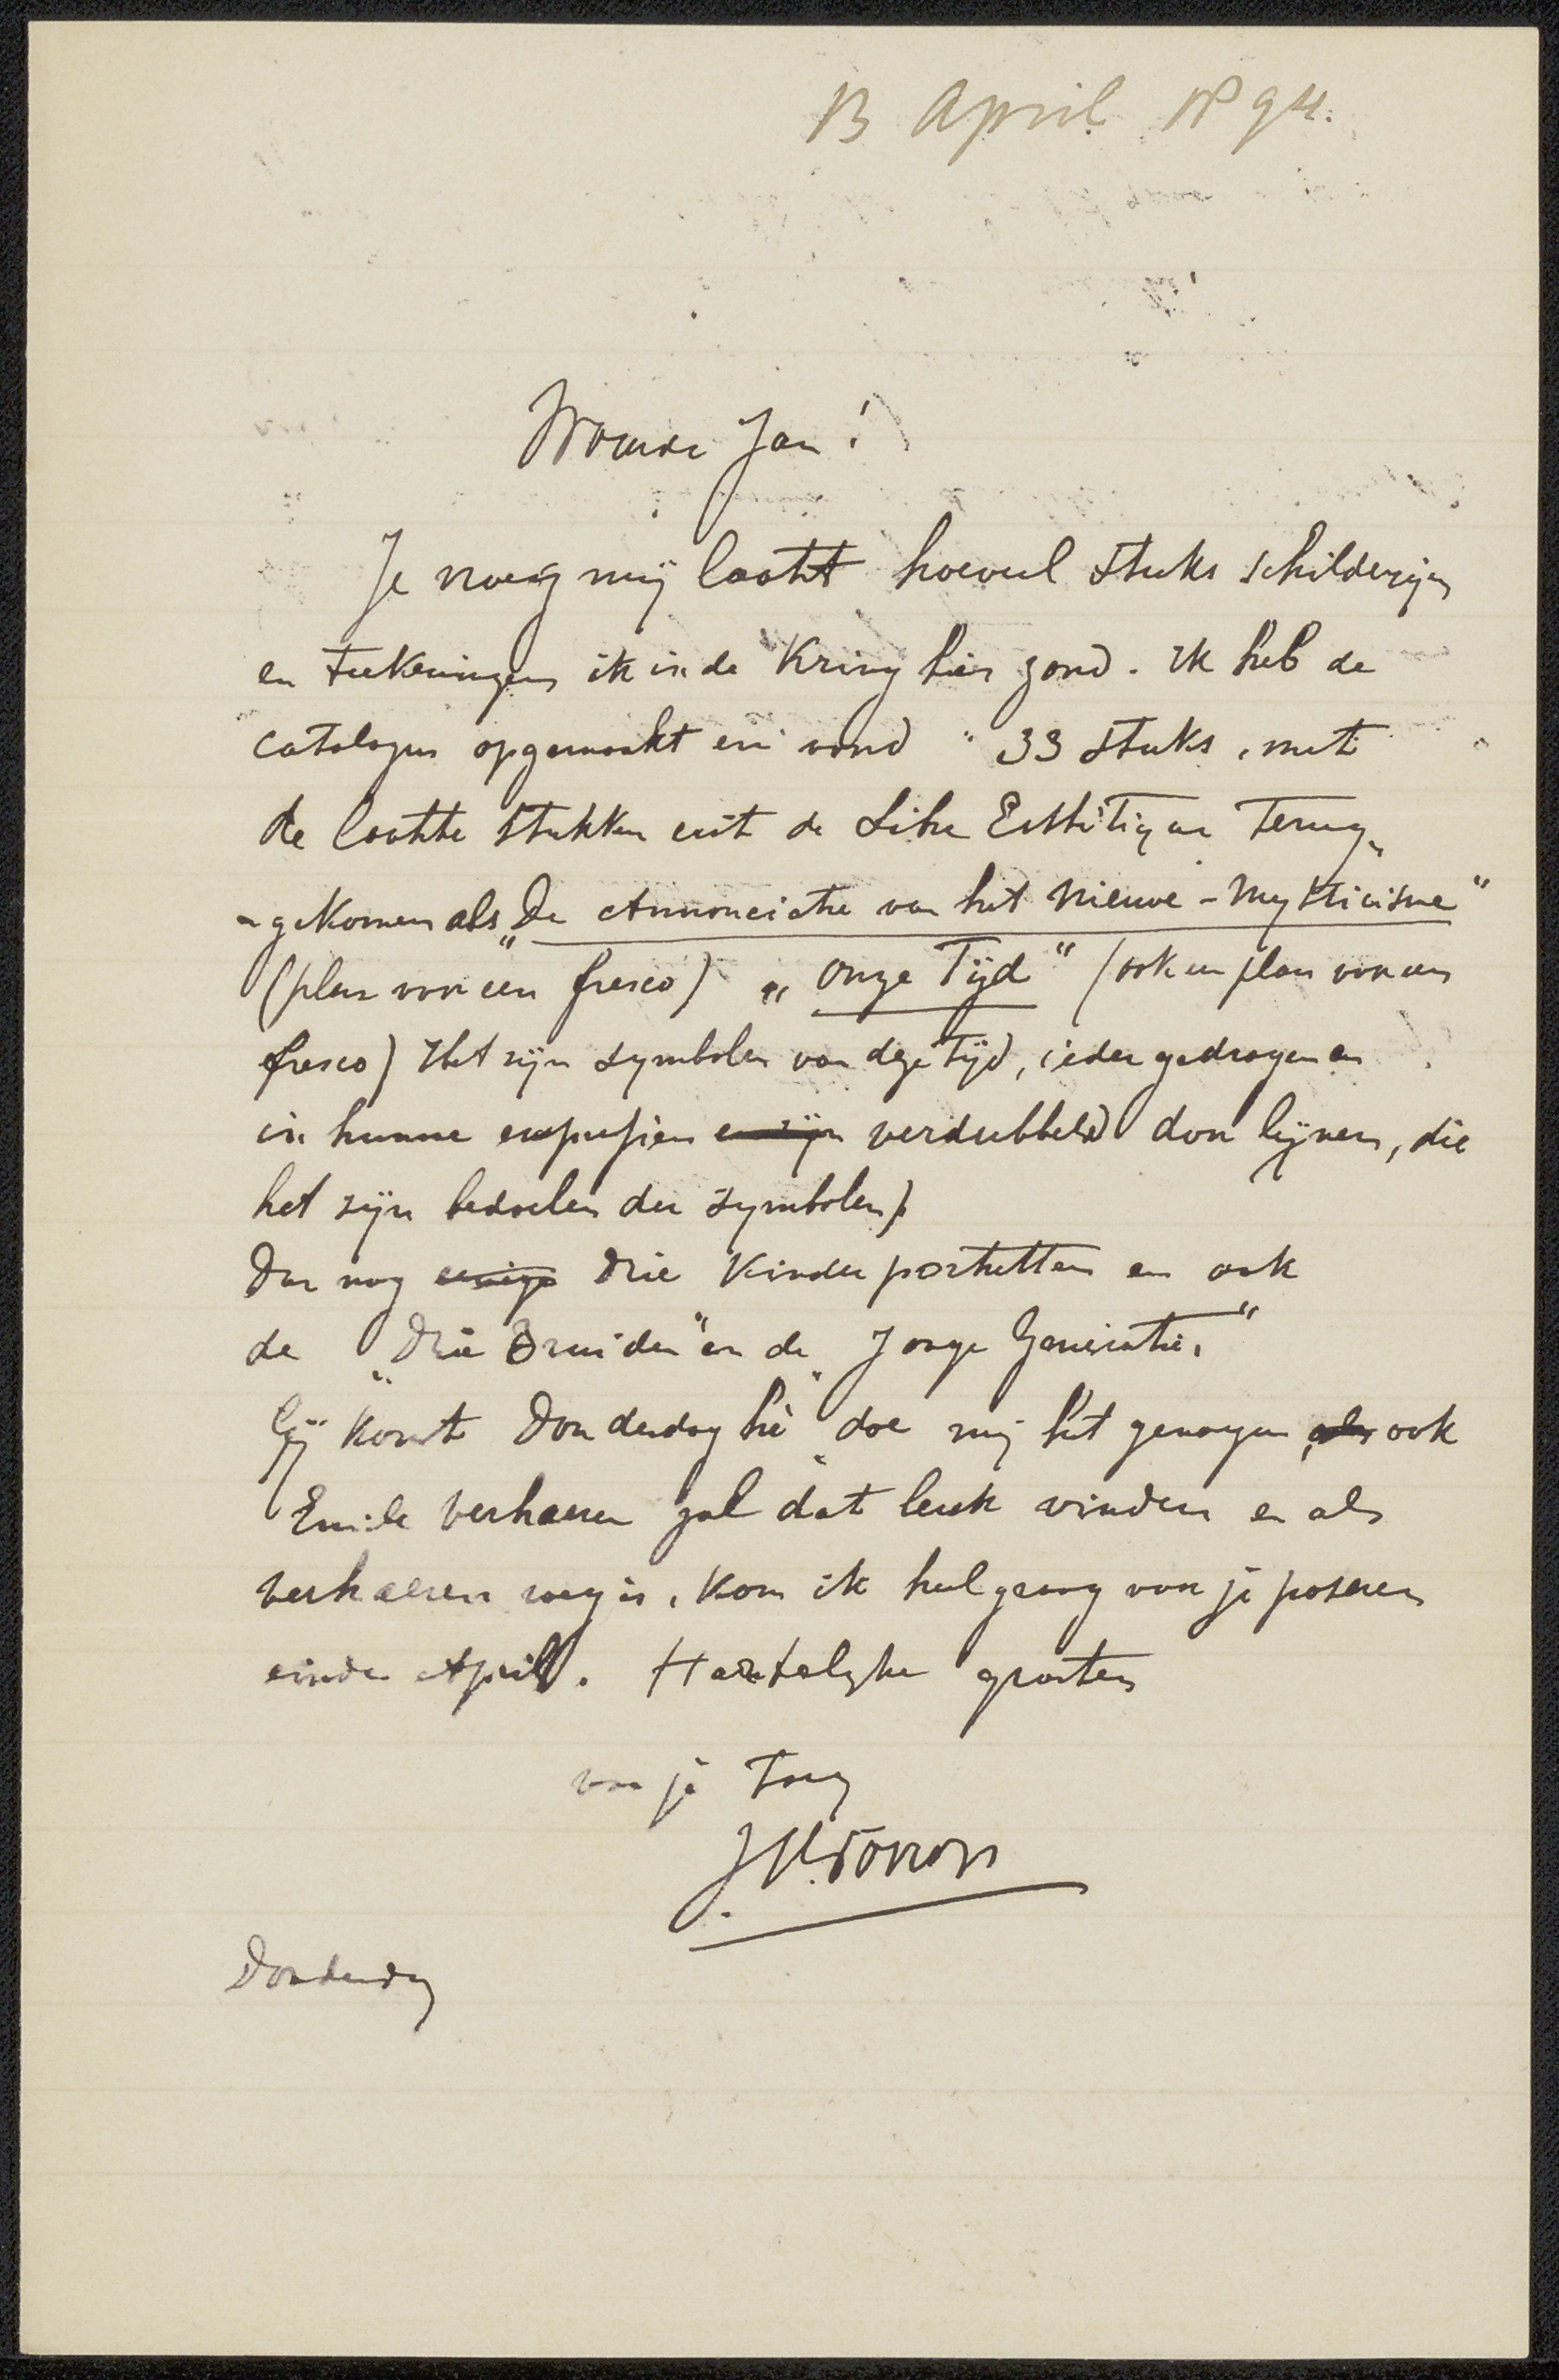 13 April 1894.
Waarde Jan!
Je vroeg mij laatst hoeveel stuks schilderijen
en teekeningen ik in de Kring hier zond. Ik heb de
catalogus opgemaakt en vond 33 stuks, met
de laatste stukken uit de Libre Esthétique terug-
-gekomen als „De Annonciatie van het Nieuwe-Mysticisme"
(plan van een fresco) „Onze Tijd" (ook een plan van een
fresco) Het zijn symbolen van deze tijd, ieder gedragen en
in hunne expressien en zijn verdubbeld door lijnen, die
het zijn bedoelen der symbolen)
Dan nog eenige drie Kinderportretten en ook
de „Drie Bruiden" en de „Jonge Generatie."
Gij komt Donderdag hè doe mij het genoegen, ook
Emile Verhaeren zal dat leuk vinden en als
Verhaeren weg is, kom ik heel graag voor je poseren
einde April. Hartelyke groeten
van je Toor
Donderdag